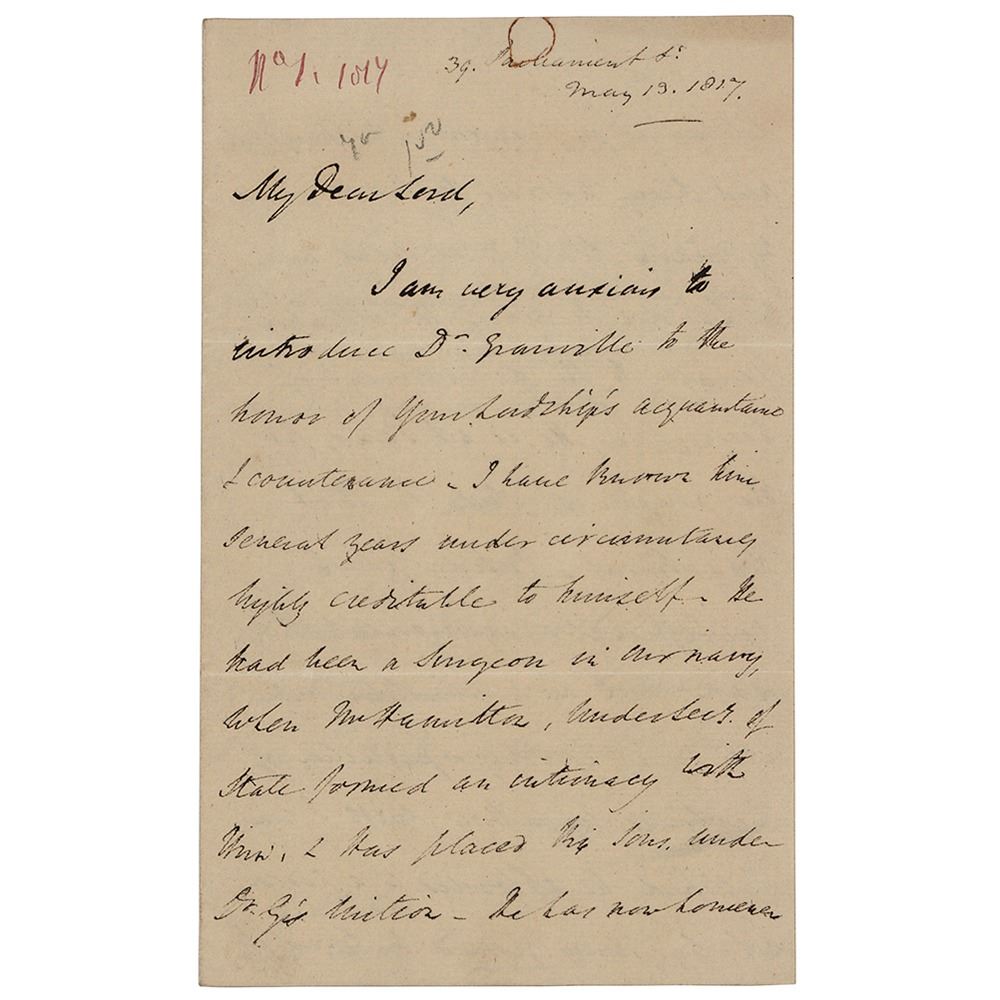 No 1. 1817
39. Parliament St.
May 13. 1817.
My Dear Lord,
I am very anxious to
introduce Dr. Granville to the
honor of Your Lordship's acquaintance
& countenance - I have known him
several years under circumstances
highly creditable to himself - He
had been a Surgeon in our navy,
when Mr Hamilton, Under Secr. of
State formed an intimacy with
him, & has placed his sons under
Dr G's tuition - He has now however